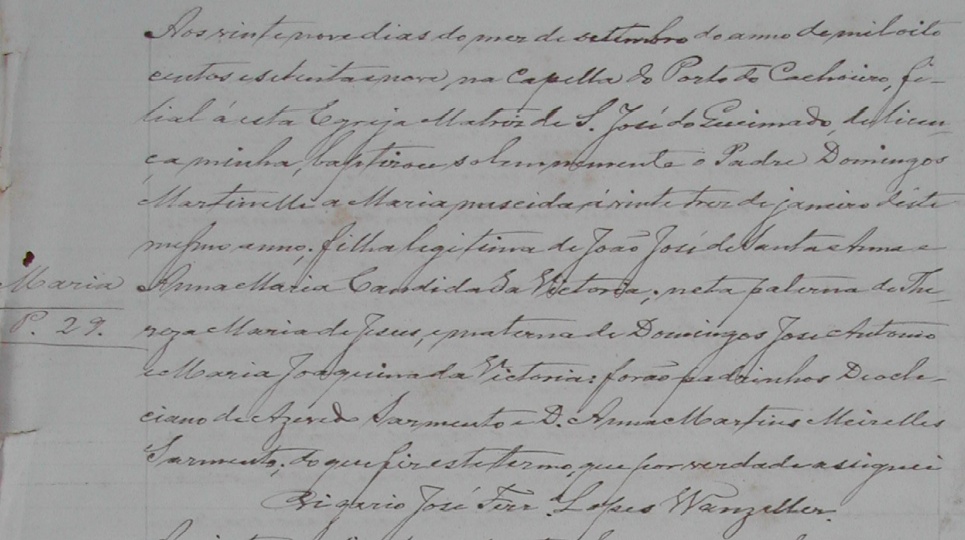 Aos vinte nove dias do mez de setembro do anno de mil oito
centos e setenta e nove, na Capella do Porto do Cachoeiro, fi-
lial á esta Egreja Matriz de S. José do Queimado, de licen-
ça minha, baptizou solemnemente o Padre Domingos
Martinelli a Maria nascida á vinte trez de janeiro deste
mesmo anno, filha legitima de João José de Santa Anna e
Maria
Anna Maria Candida da Victoria; neta paterna de The-
P. 29.
reza Maria de Jesus, e materna de Domingos José Antonio
e Maria Joaquina da Victoria: forão padrinhos Diocle-
ciano de Azevedo Sarmento e D. Anna Martins Meirelles
Sarmento, do que fiz este termo, que por verdade assignei
Vigario José Ferr. Lopes Wanzeller.